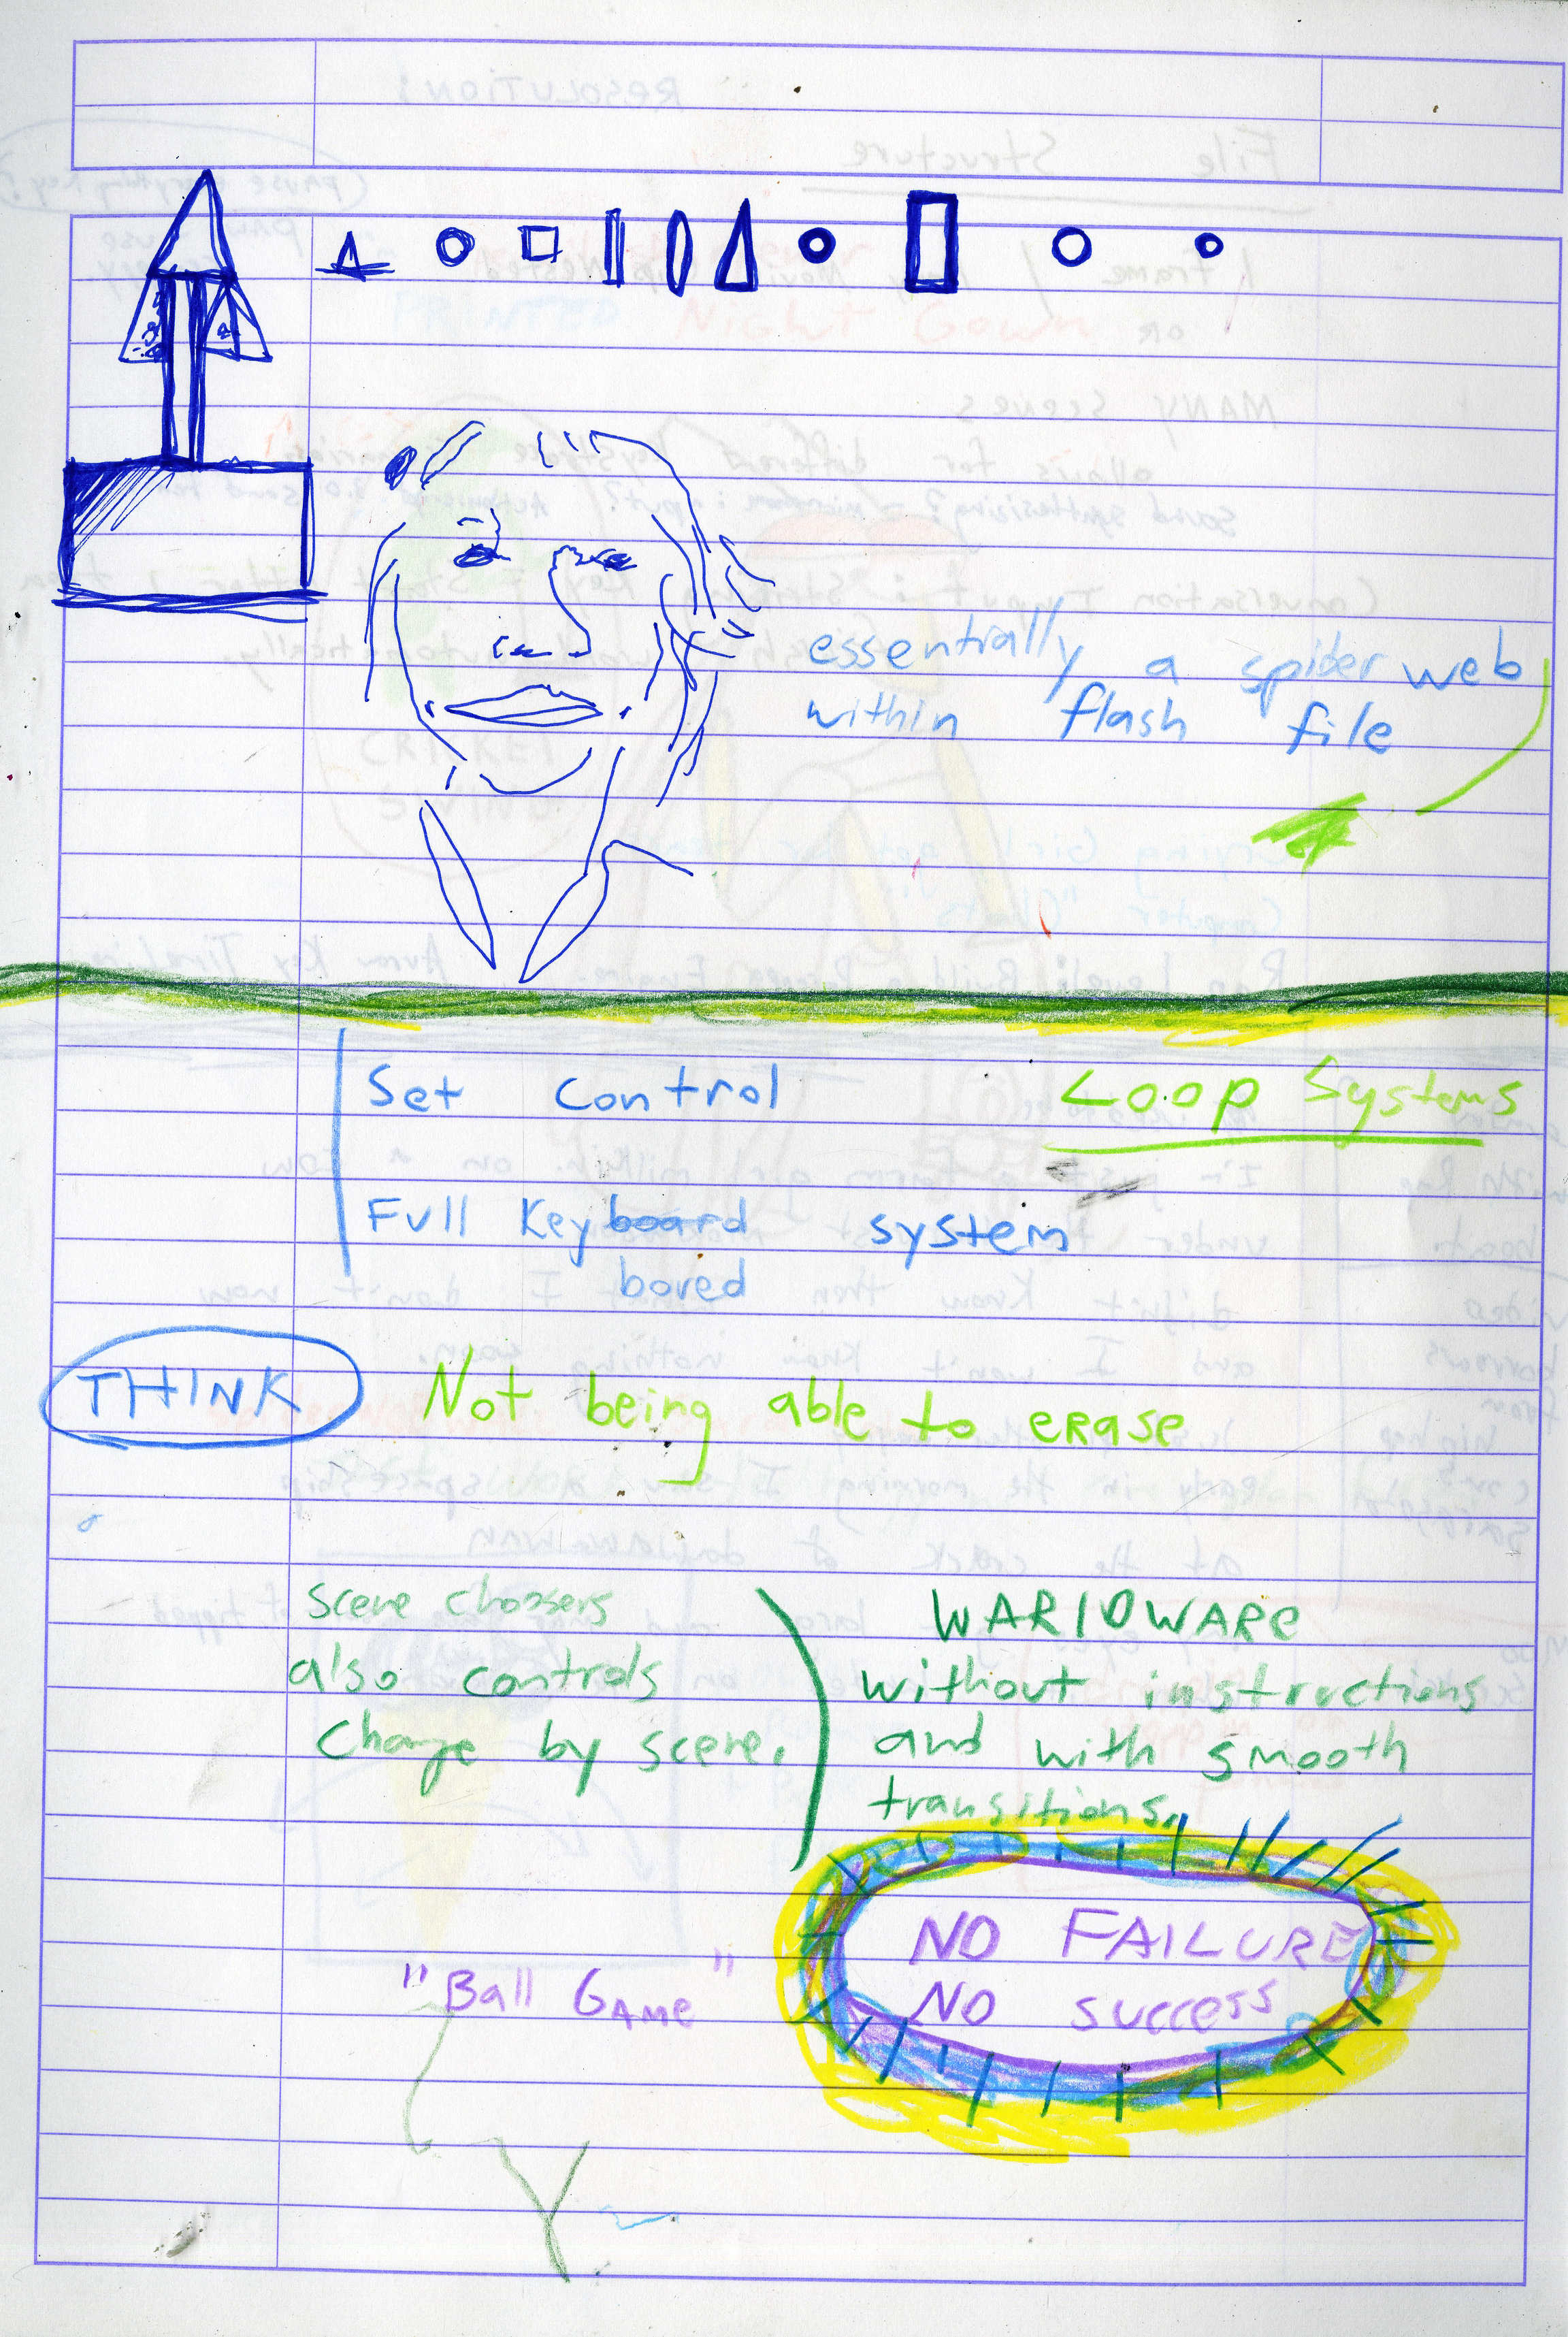 essentially a spider web
within flash file
Set Control
Loop Systems
Full Keyboard system
bored
THINK
Not being able to erase
scene choosers
also controls
change by scene.
WARIOWARE
without instructions
and with smooth
transitions.
NO FAILURE
NO success
"Ball GAME"